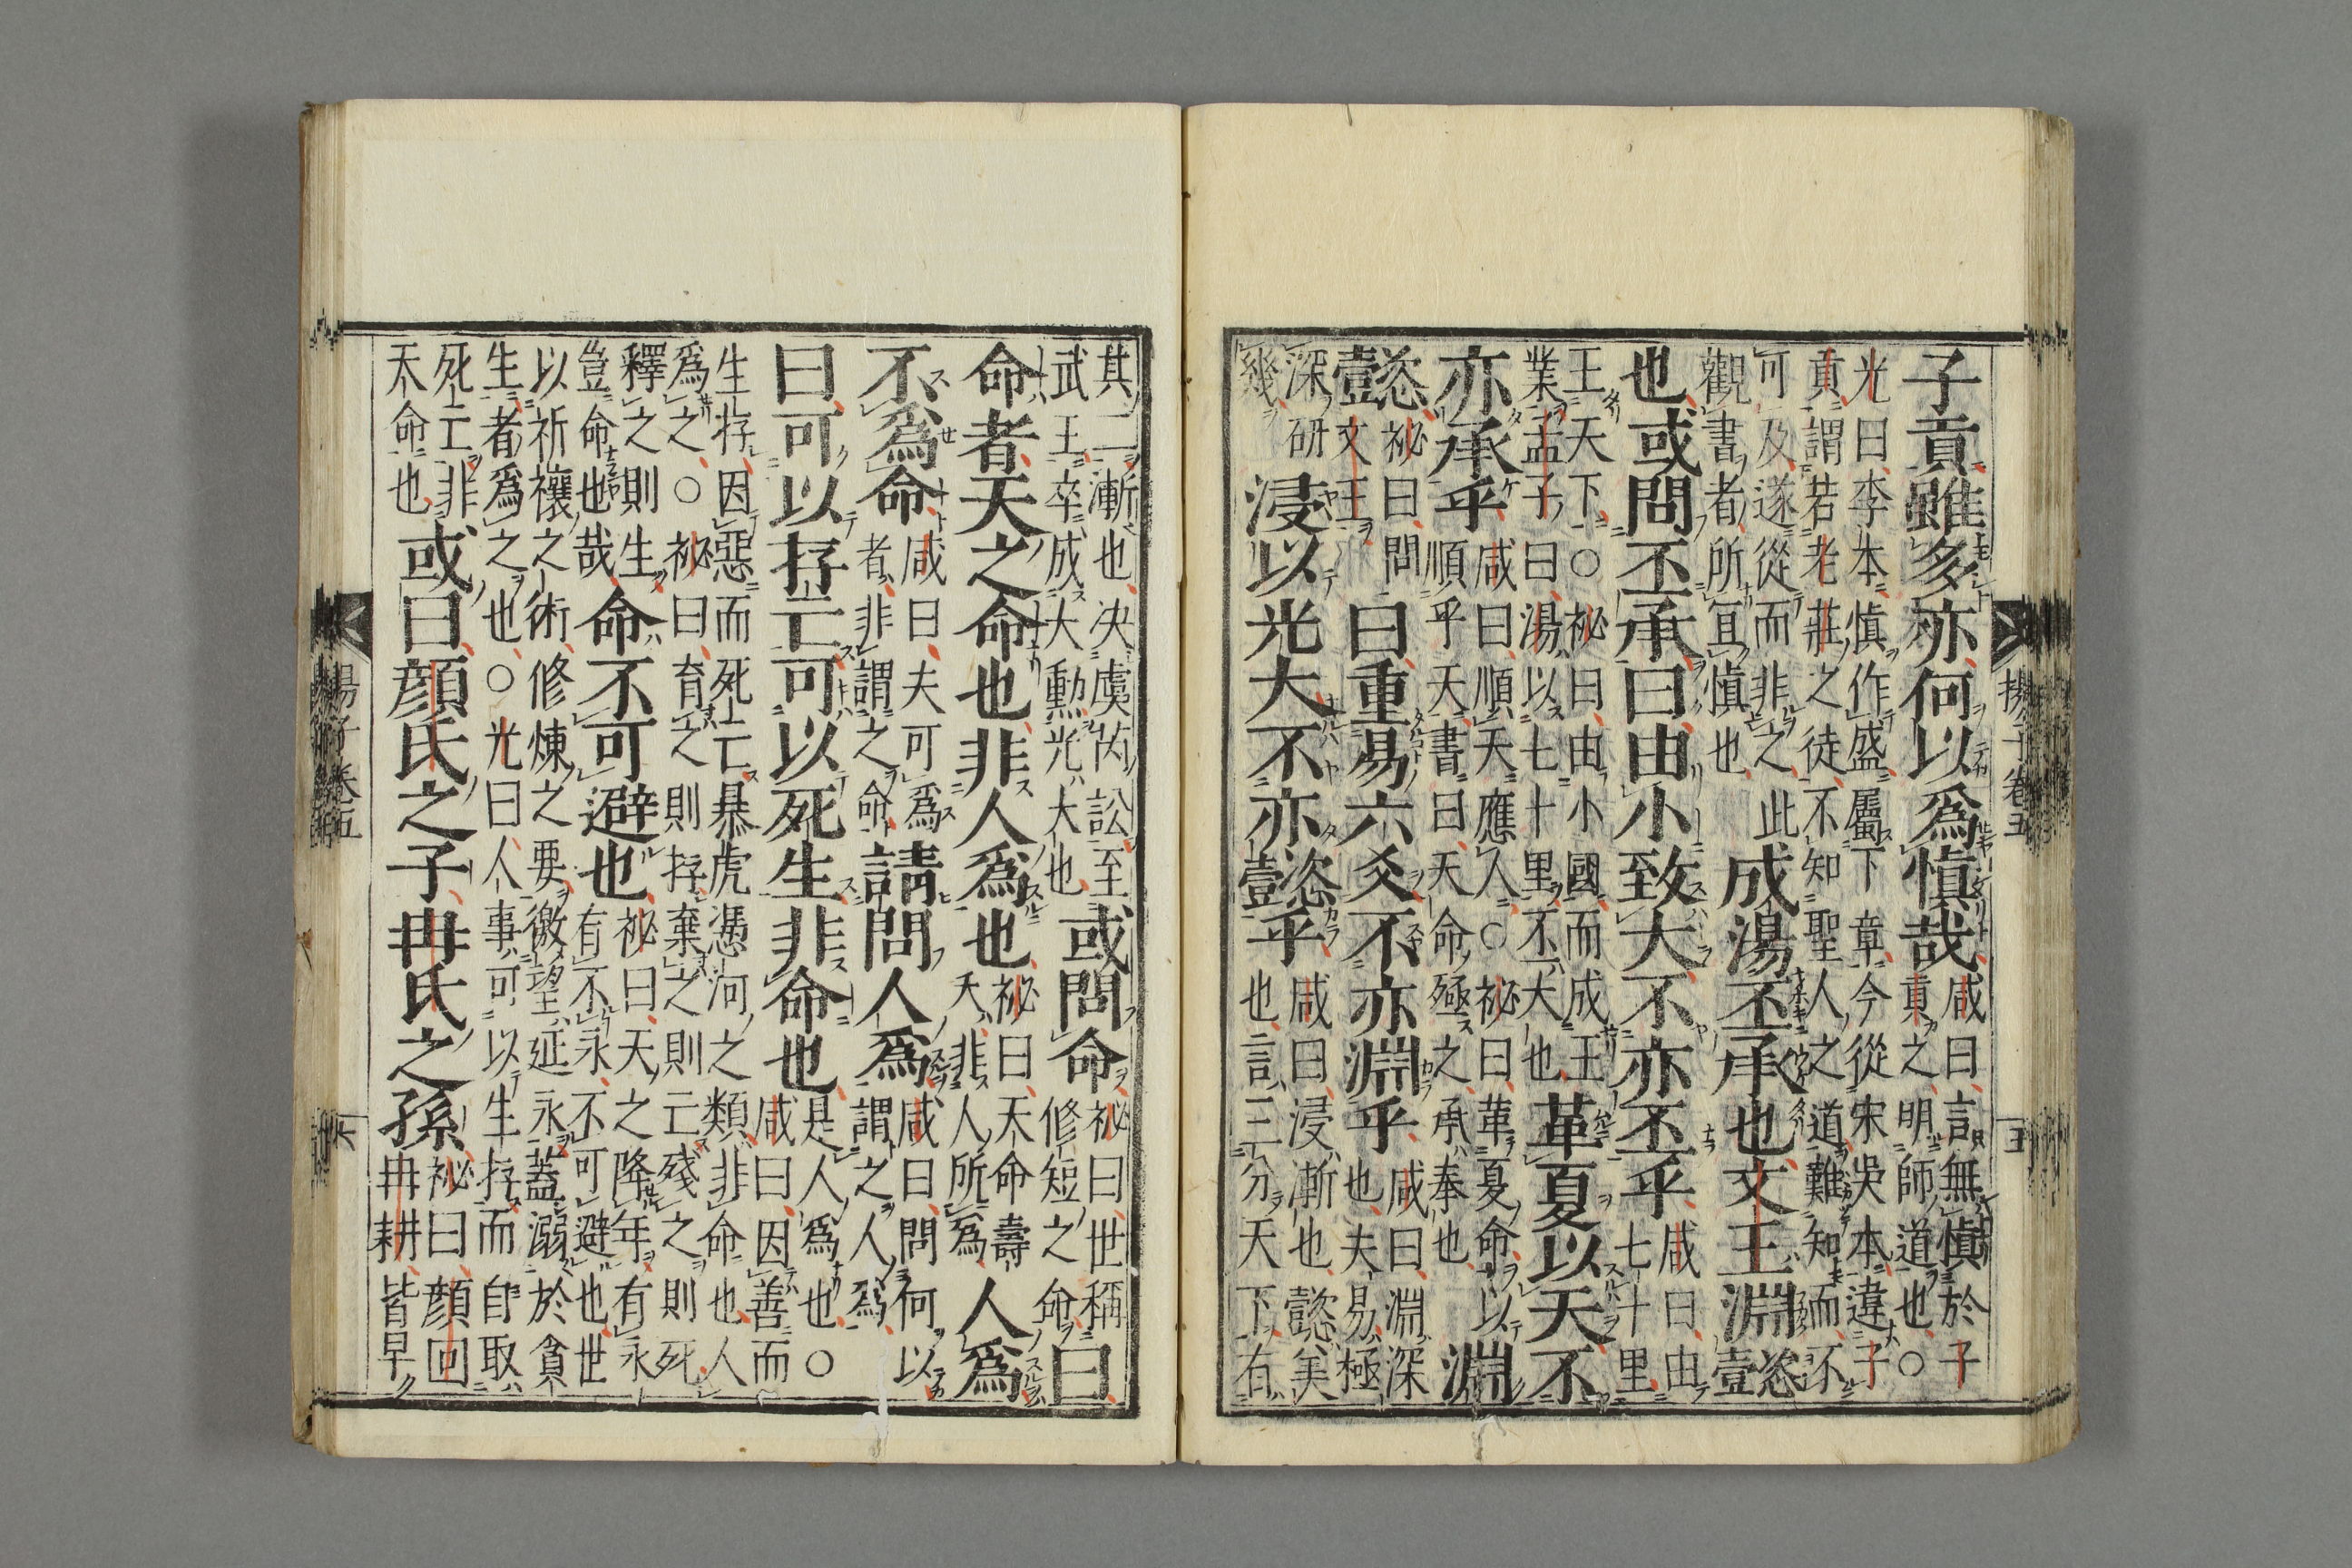 子貢雖多亦何以爲愼哉咸曰言無愼於子
貢之明師道也○
光曰李本愼作盛屬下章今從宋吳本違子
貢謂若老莊之徒不知聖人之道難知而不
可及遂從而非之此
觀書者所冝愼也成湯丕承也文王淵懿
也或問丕承曰由小致大不亦丕乎咸曰由
七十里
王天下○祕曰由小國而成王
業孟子曰湯以七十里不大也革夏以天不
亦承乎咸曰順天應人○祕曰革夏命以
順乎天書曰天命殛之承奉也淵
懿祕曰問
文王曰重易六爻不亦淵乎咸曰淵深
也夫易極
深研
幾浸以光大不亦懿乎咸曰浸漸也懿美
也言三分天下有
揚子卷五
五
其二漸也决虞芮訟至
武王卒成大勳光大也或問命祕曰世稱
修短之命曰
命者天之命也非人爲也祕曰天命壽
夭非人所爲人爲
不爲命咸曰夫可爲
者非謂之命請問人爲咸曰問何以
謂之人爲
曰可以存亡可以死生非命也是人爲也○
咸曰因善而
生存因惡而死亡暴虎憑河之類非命也人
爲之○祕曰育之則存棄之則亡殘之則死
釋之則生
豈命也哉命不可避也祕曰天之降年有永
有不永不可避也世
以祈禳之術修煉之要徼望延永蓋溺於貪
生者爲之也○光曰人事可以生存而自取
死亡非
天命也或曰顔氏之子冉氏之孫祕曰顔回
冉耕皆早
揚子卷五
六